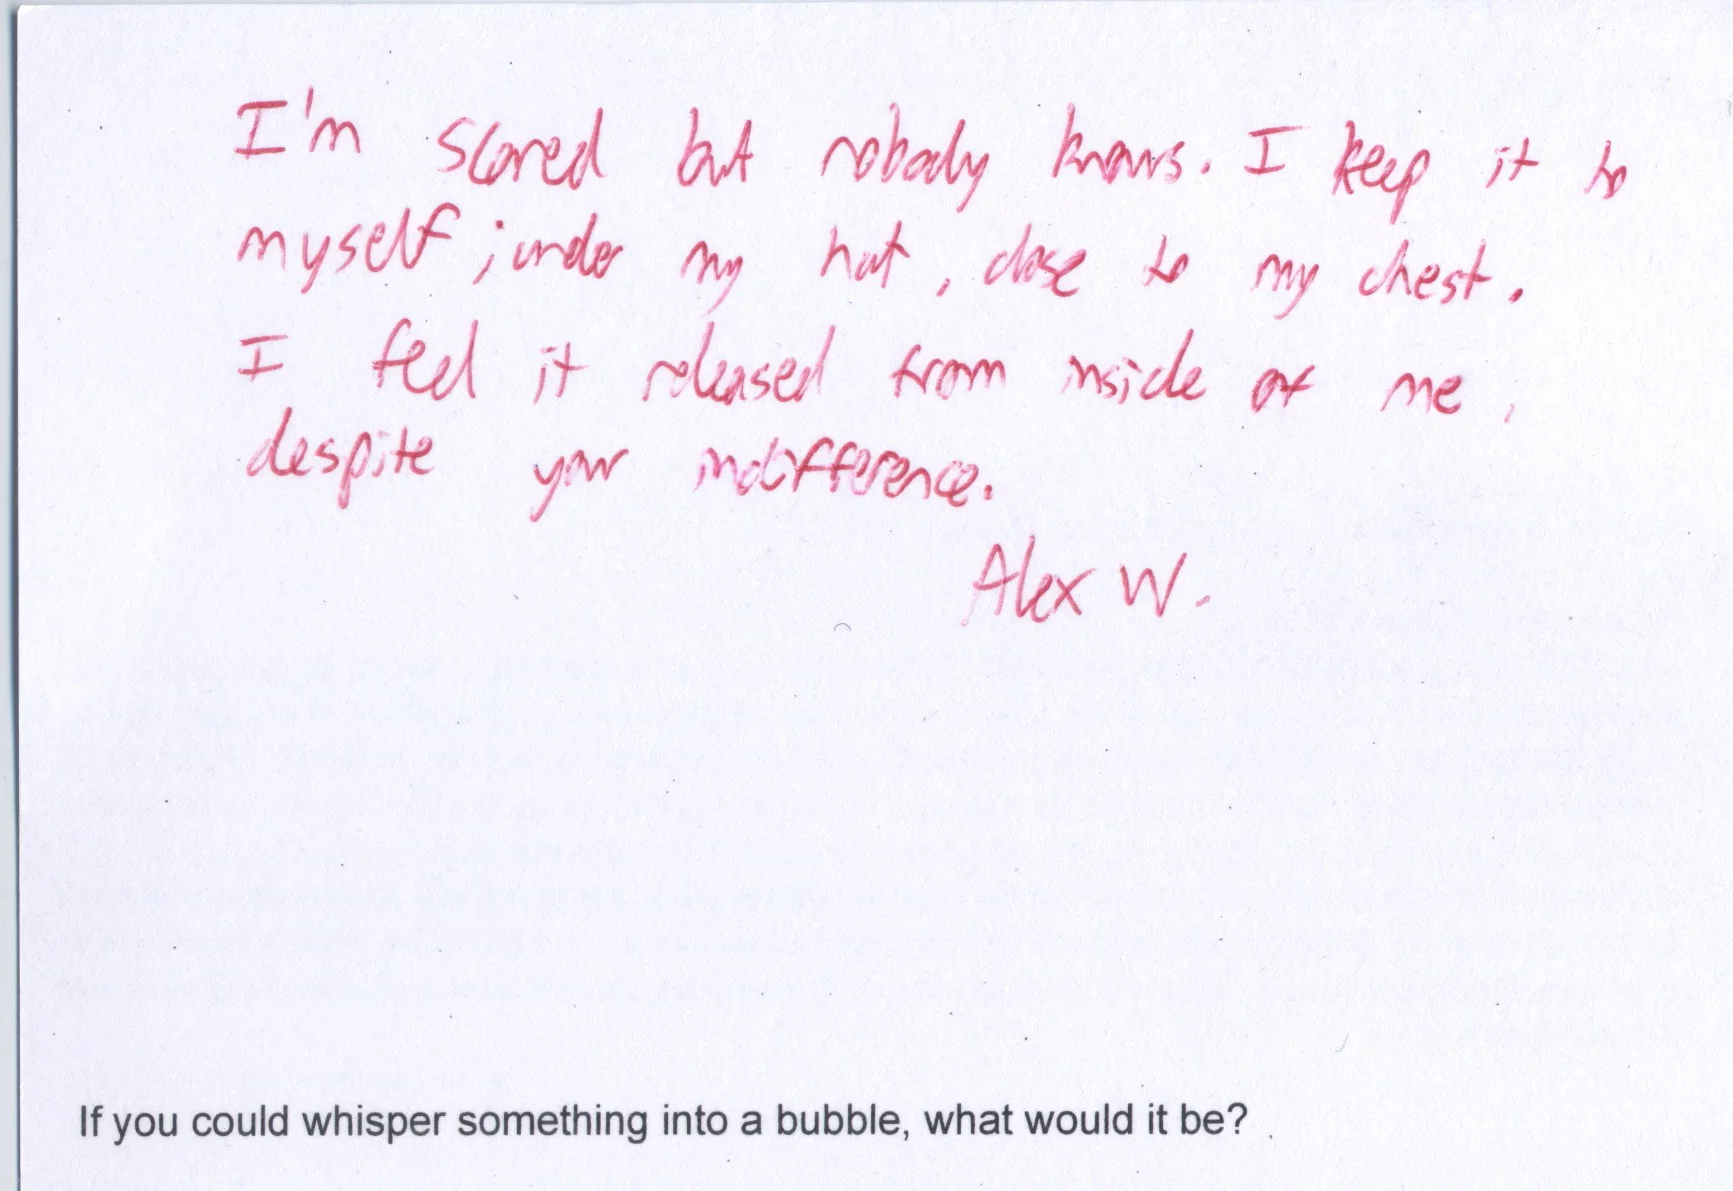 I'm scared but nobody knows. I keep it to
myself; under my hat, close to my chest.
I feel it released from inside of me,
despite your indifference.
Alex W.
If you could whisper something into a bubble, what would it be?